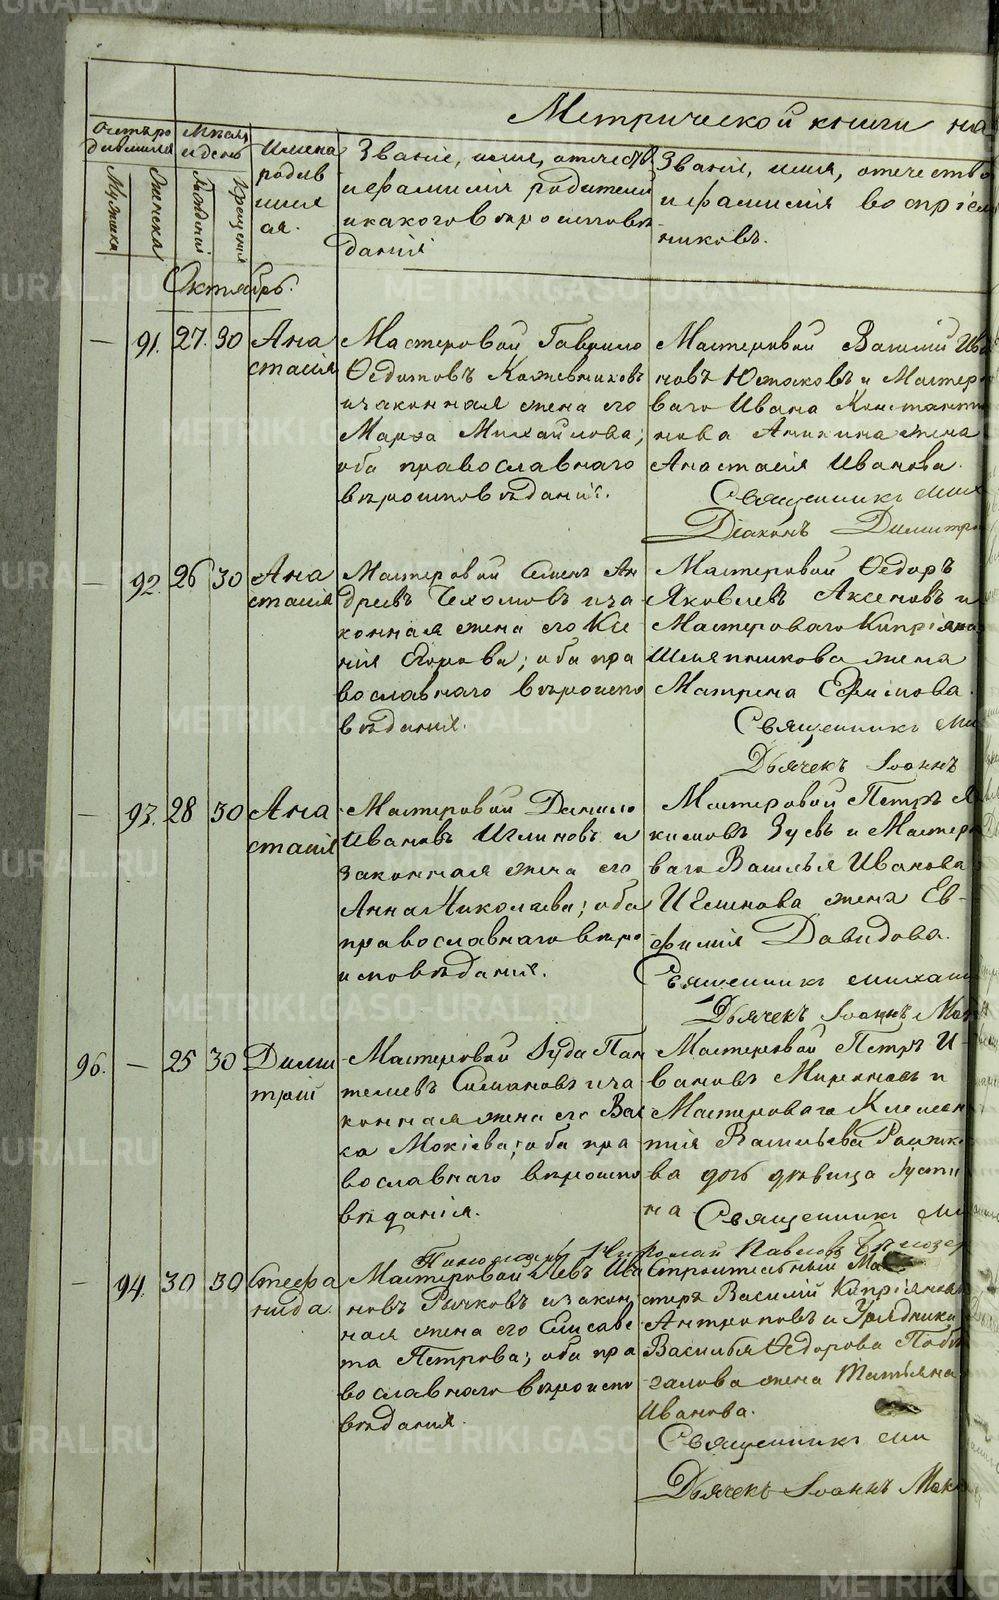 Метрической книги на
Счетъ ро
дившихся
Мужска
Женска
Мѣсяцъ
и день
Рожденія
Крещенія
Имена
родив
шихся
ая.
Званіе, имя, отчество
и фамилія родителей
и какого вѣроисповѣ
данія
Званіе, имя, отчество
и фамилія воспріем
никовъ.
Октябрь.
— 91. 27. 30 Ана
стасія
Мастеровой Гаврило
Ѳедотовъ Кожевниковъ
и законная жена его
Марѳа Михайлова;
оба православнаго
вѣроисповѣданія.
Мастеровой Василій Ива
новъ Южаковъ и Мастеро
ваго Ивана Константи
нова Аникина жена
Анастасія Иванова.
Священникъ Мих
Діаконъ Димитрі
— 92. 26 30 Ана
стасія
Мастеровой Семенъ Ан
дреевъ Чехомовъ и за
конная жена его Ксе
нія Егорова; оба пра
вославнаго вѣроиспо
вѣданія.
Мастеровой Ѳедоръ
Яковлевъ Аксеновъ и
Мастероваго Кипріяна
Шляпникова жена
Матрена Ефимова.
Священникъ Ми
Дьячекъ Іоаннъ
— 93. 28 30 Ана
стасія
Мастеровой Данило
Ивановъ Иглиновъ и
законная жена его
Анна Николаева; оба
православнаго вѣро
исповѣданія.
Мастеровой Петръ Я
кимовъ Зуевъ и Мастеро
ваго Василья Иванова
Иглинова жена Ев-
фимія Давидова.
Священникъ Михаи
Дьячекъ Іоаннъ Мак
96. — 25 30 Дими
трій
Мастеровой Іуда Пан
телеевъ Симановъ и за
конная жена его Вас
са Мокіева; оба пра
вославнаго вѣроиспо
вѣданія.
Мастеровой Петръ И-
вановъ Мироновъ и
Мастероваго Клемен
тія Васильева
ва дочь дѣвица Іусти
на. Священникъ Ми
Павловъ
— 94. 30 30 Стефа
нида
Мастеровой Левъ Ива
новъ Рычковъ и закон
ная жена его Елисаве
та Петрова; оба пра
вославнаго вѣроиспо
вѣданія.
Строительный Ма
стеръ Василій Кипріяновъ
Антроповъ и Урядника
Василья Ѳедорова
жена Татьяна
Иванова.
Священникъ Ми
Дьячекъ Іоаннъ Мак
METRIKI.GASO-URAL.RU